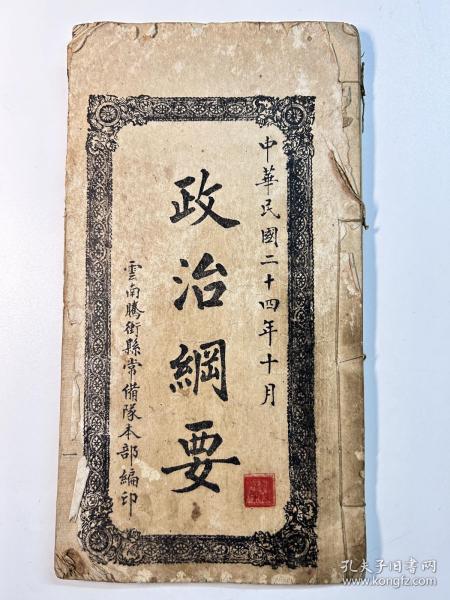 中華民國二十四年十月
政治綱要
雲南騰衝縣常備隊本部編印
孔夫子旧书网
kongfz.com